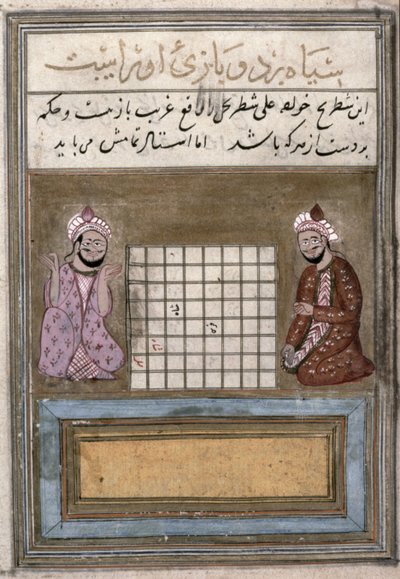 سیاه برد و بازئ او راست
این شطرنج خواجه علی شطرنجی را واقع غریب بازیست و حکم
بر دست از هر که باشد اما استاد تمامش می باید
شاه